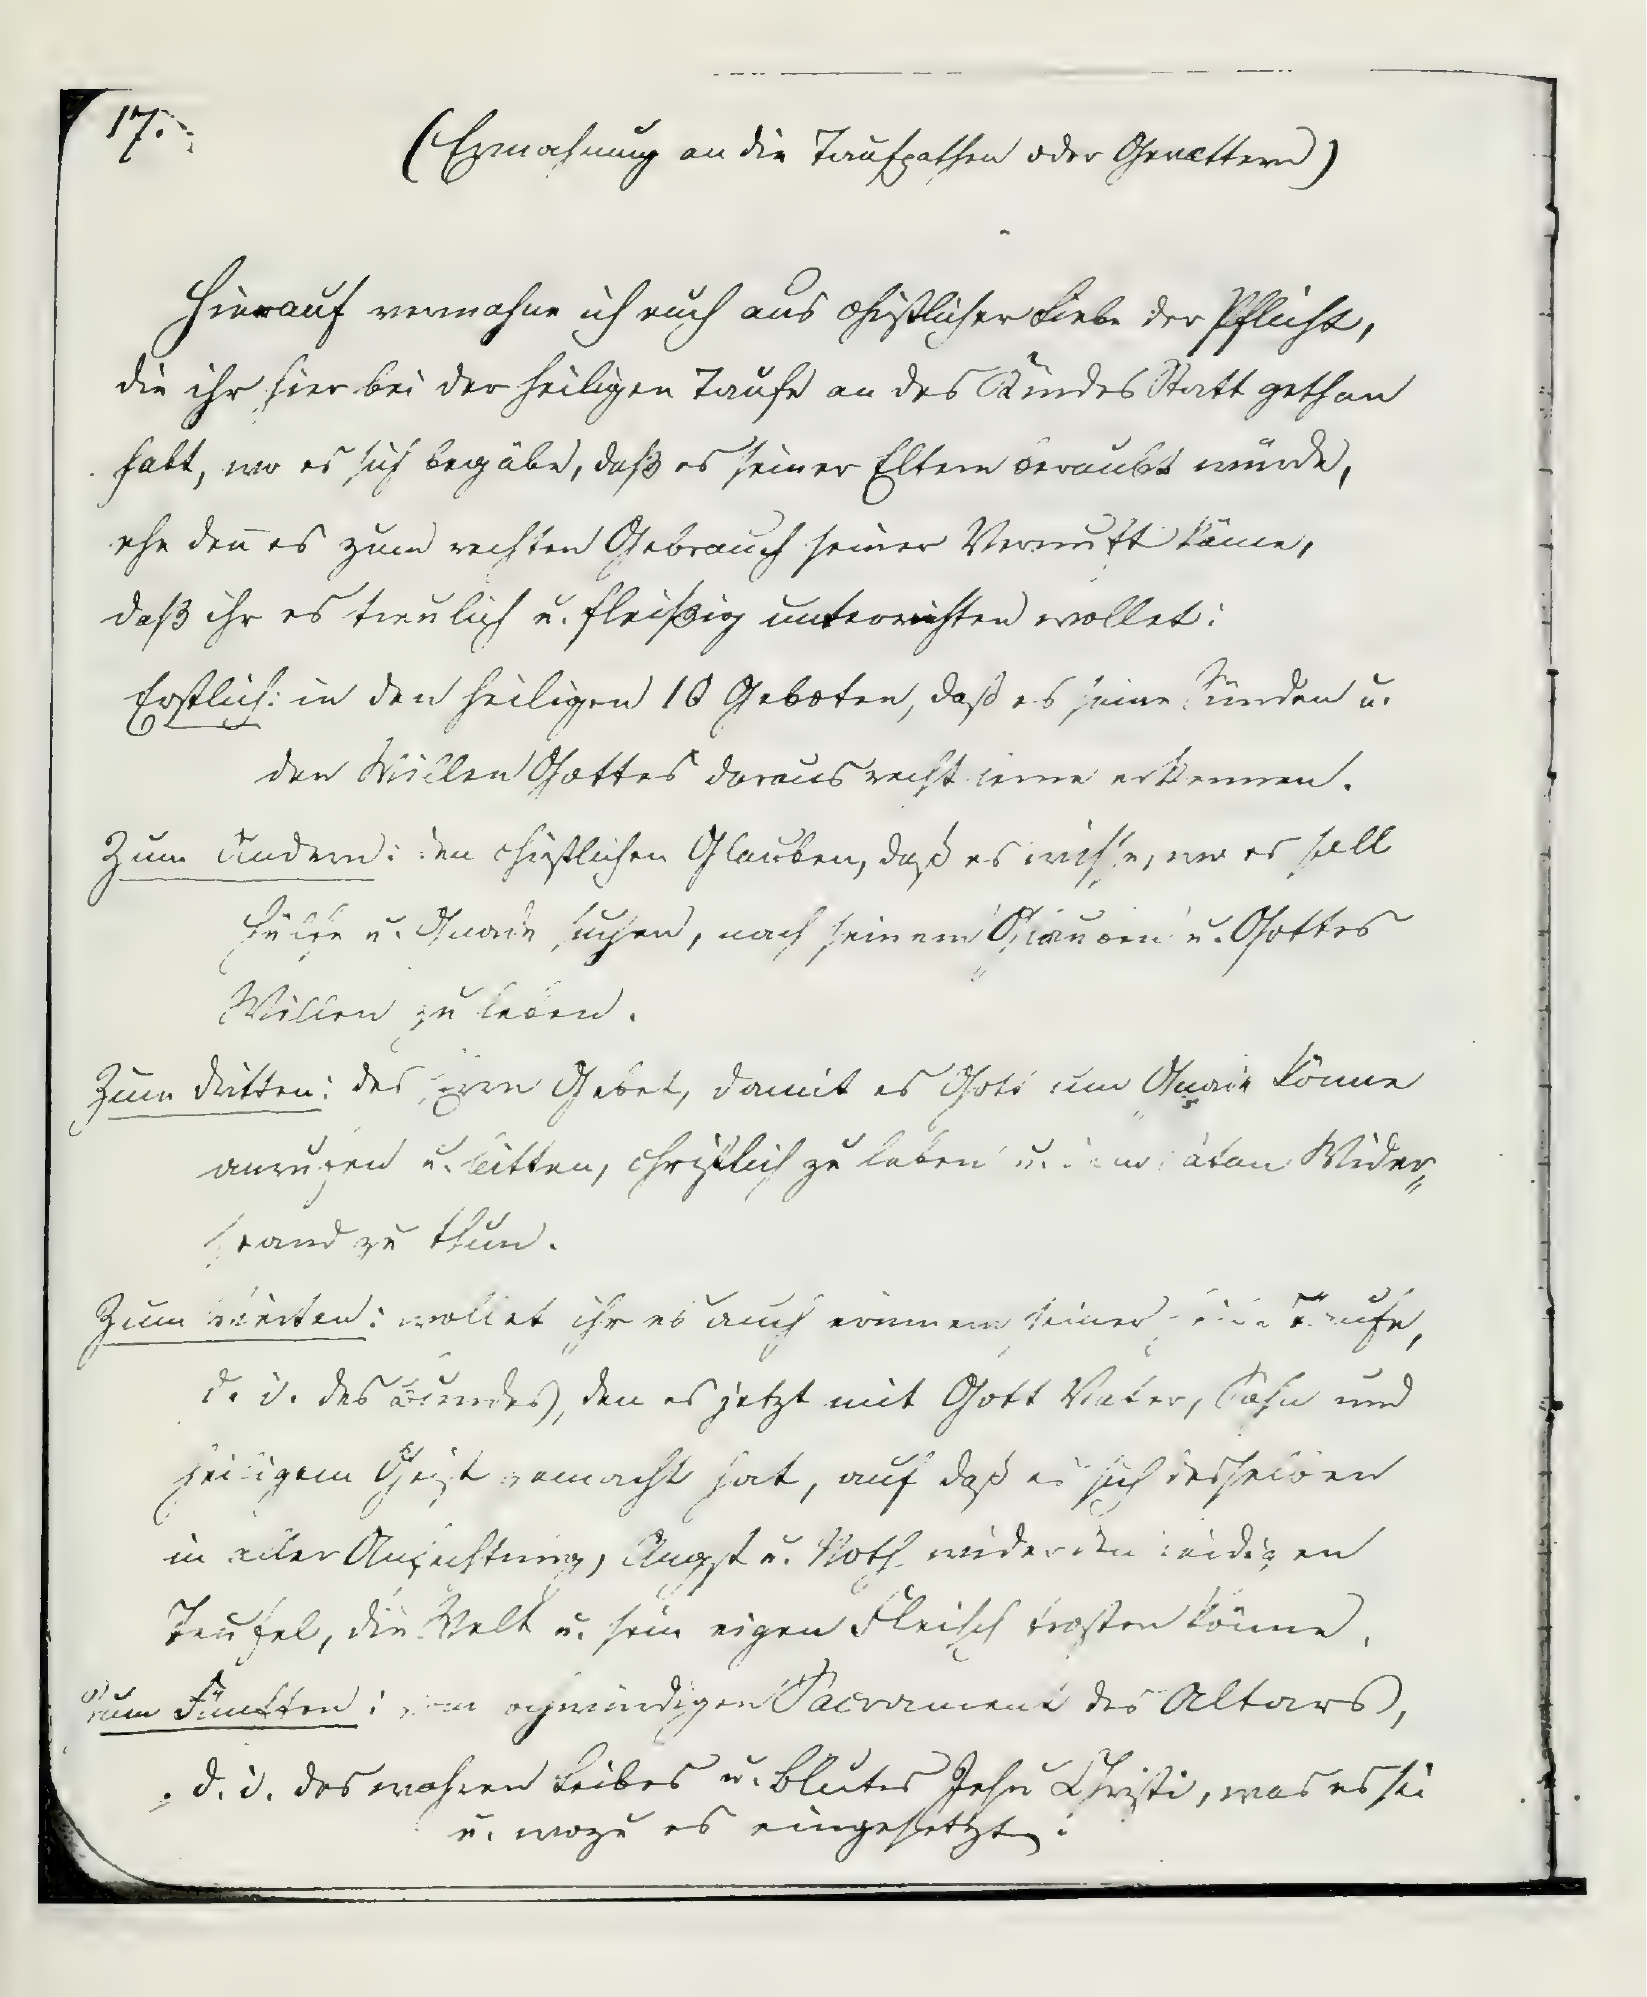 17.
(Ermahnung an die Taufpathen oder Gevattern)
Hierauf vermahne ich euch aus christlicher Liebe der Pflicht,
die ihr hier bei der heiligen Taufe an des Kindes Statt gethan
habt, wo es sich begäbe, daß es seiner Eltern beraubt würde,
ehe deñ es zum rechten Gebrauch seiner Vernunft käme,
daß ihr es treulich u. fleißig unterrichten wollet:
Erstlich: in den heiligen 10 Geboten, daß es seine Sünden u.
den Willen Gottes daraus recht lerne erkennen.
Zum Andern: den christlichen Glauben, daß es wisse, wo es soll
Hülfe u. Gnade suchen, nach seinem Glauben u. Gottes
Willen zu leben.
Zum dritten: des Herrn Gebet, damit es Gott um Gnade könne
anrufen u. bitten, christlich zu leben u. dem Satan Wider„
stand zu thun.
Zum vierten: wollet ihr es auch erinnern seiner Taufe,
d. i. des Bundes, den es jetzt mit Gott Vater, Sohn und
heiligem Geist gemacht hat, auf daß es sich desselben
in aller Anfechtung, Angst u. Noth wider den leidigen
Teufel, die Welt u. sein eigen Fleisch trösten könne.
Zum Fünften: vom hochwürdigen Sacrament des Altars,
d. i. des wahren Leibes u. Blutes Jesu Christi, was es sei
u. wozu es eingesetzt: